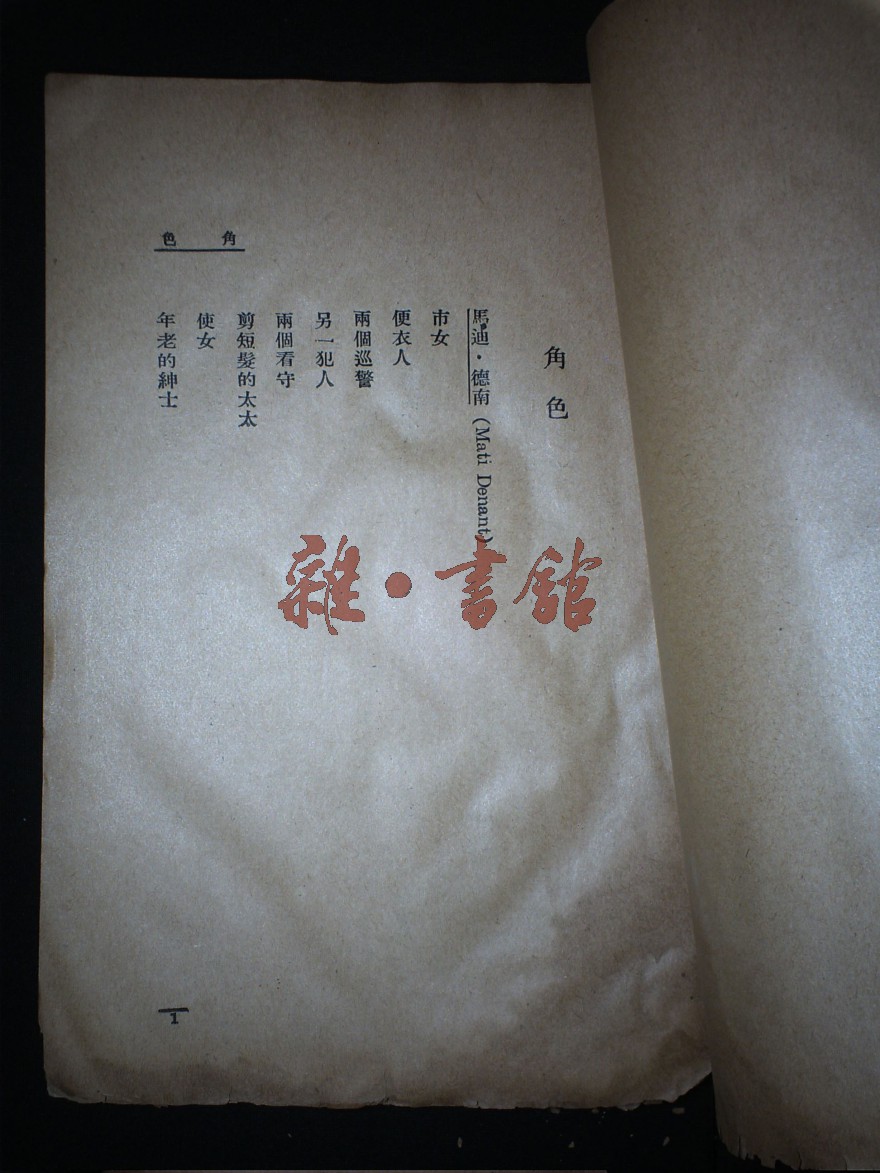 角色
角色
馬迪・德南 (Mati Denant)
市女
便衣人
兩個巡警
另一犯人
兩個看守
剪短髮的太太
使女
年老的紳士
1
雜・書館